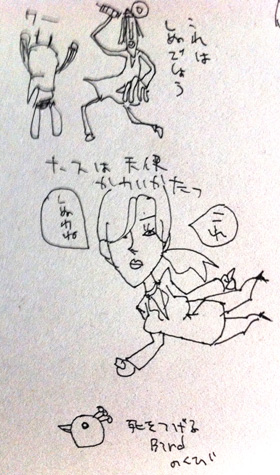 これは
しぬでしょう
ナースは天使
かわいかたっ
これ
しぬわね
死をつげる
Bird
のくび